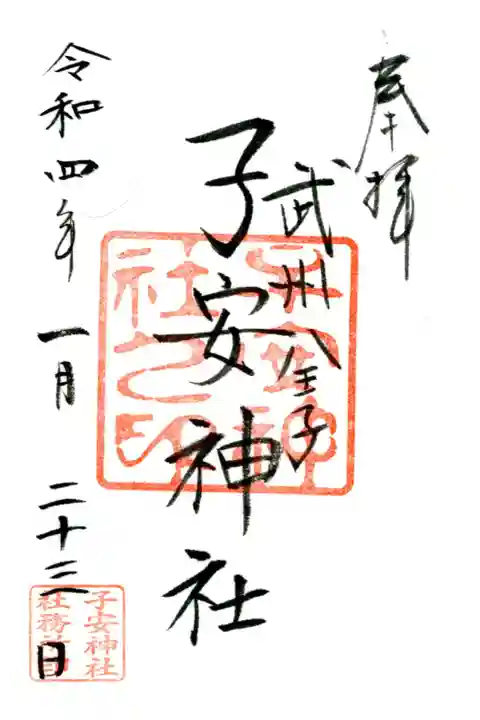 奉拝
武州八王子
子安神社
子安神社之印
令和四年 一月 二十三日
子安神社
社務所印